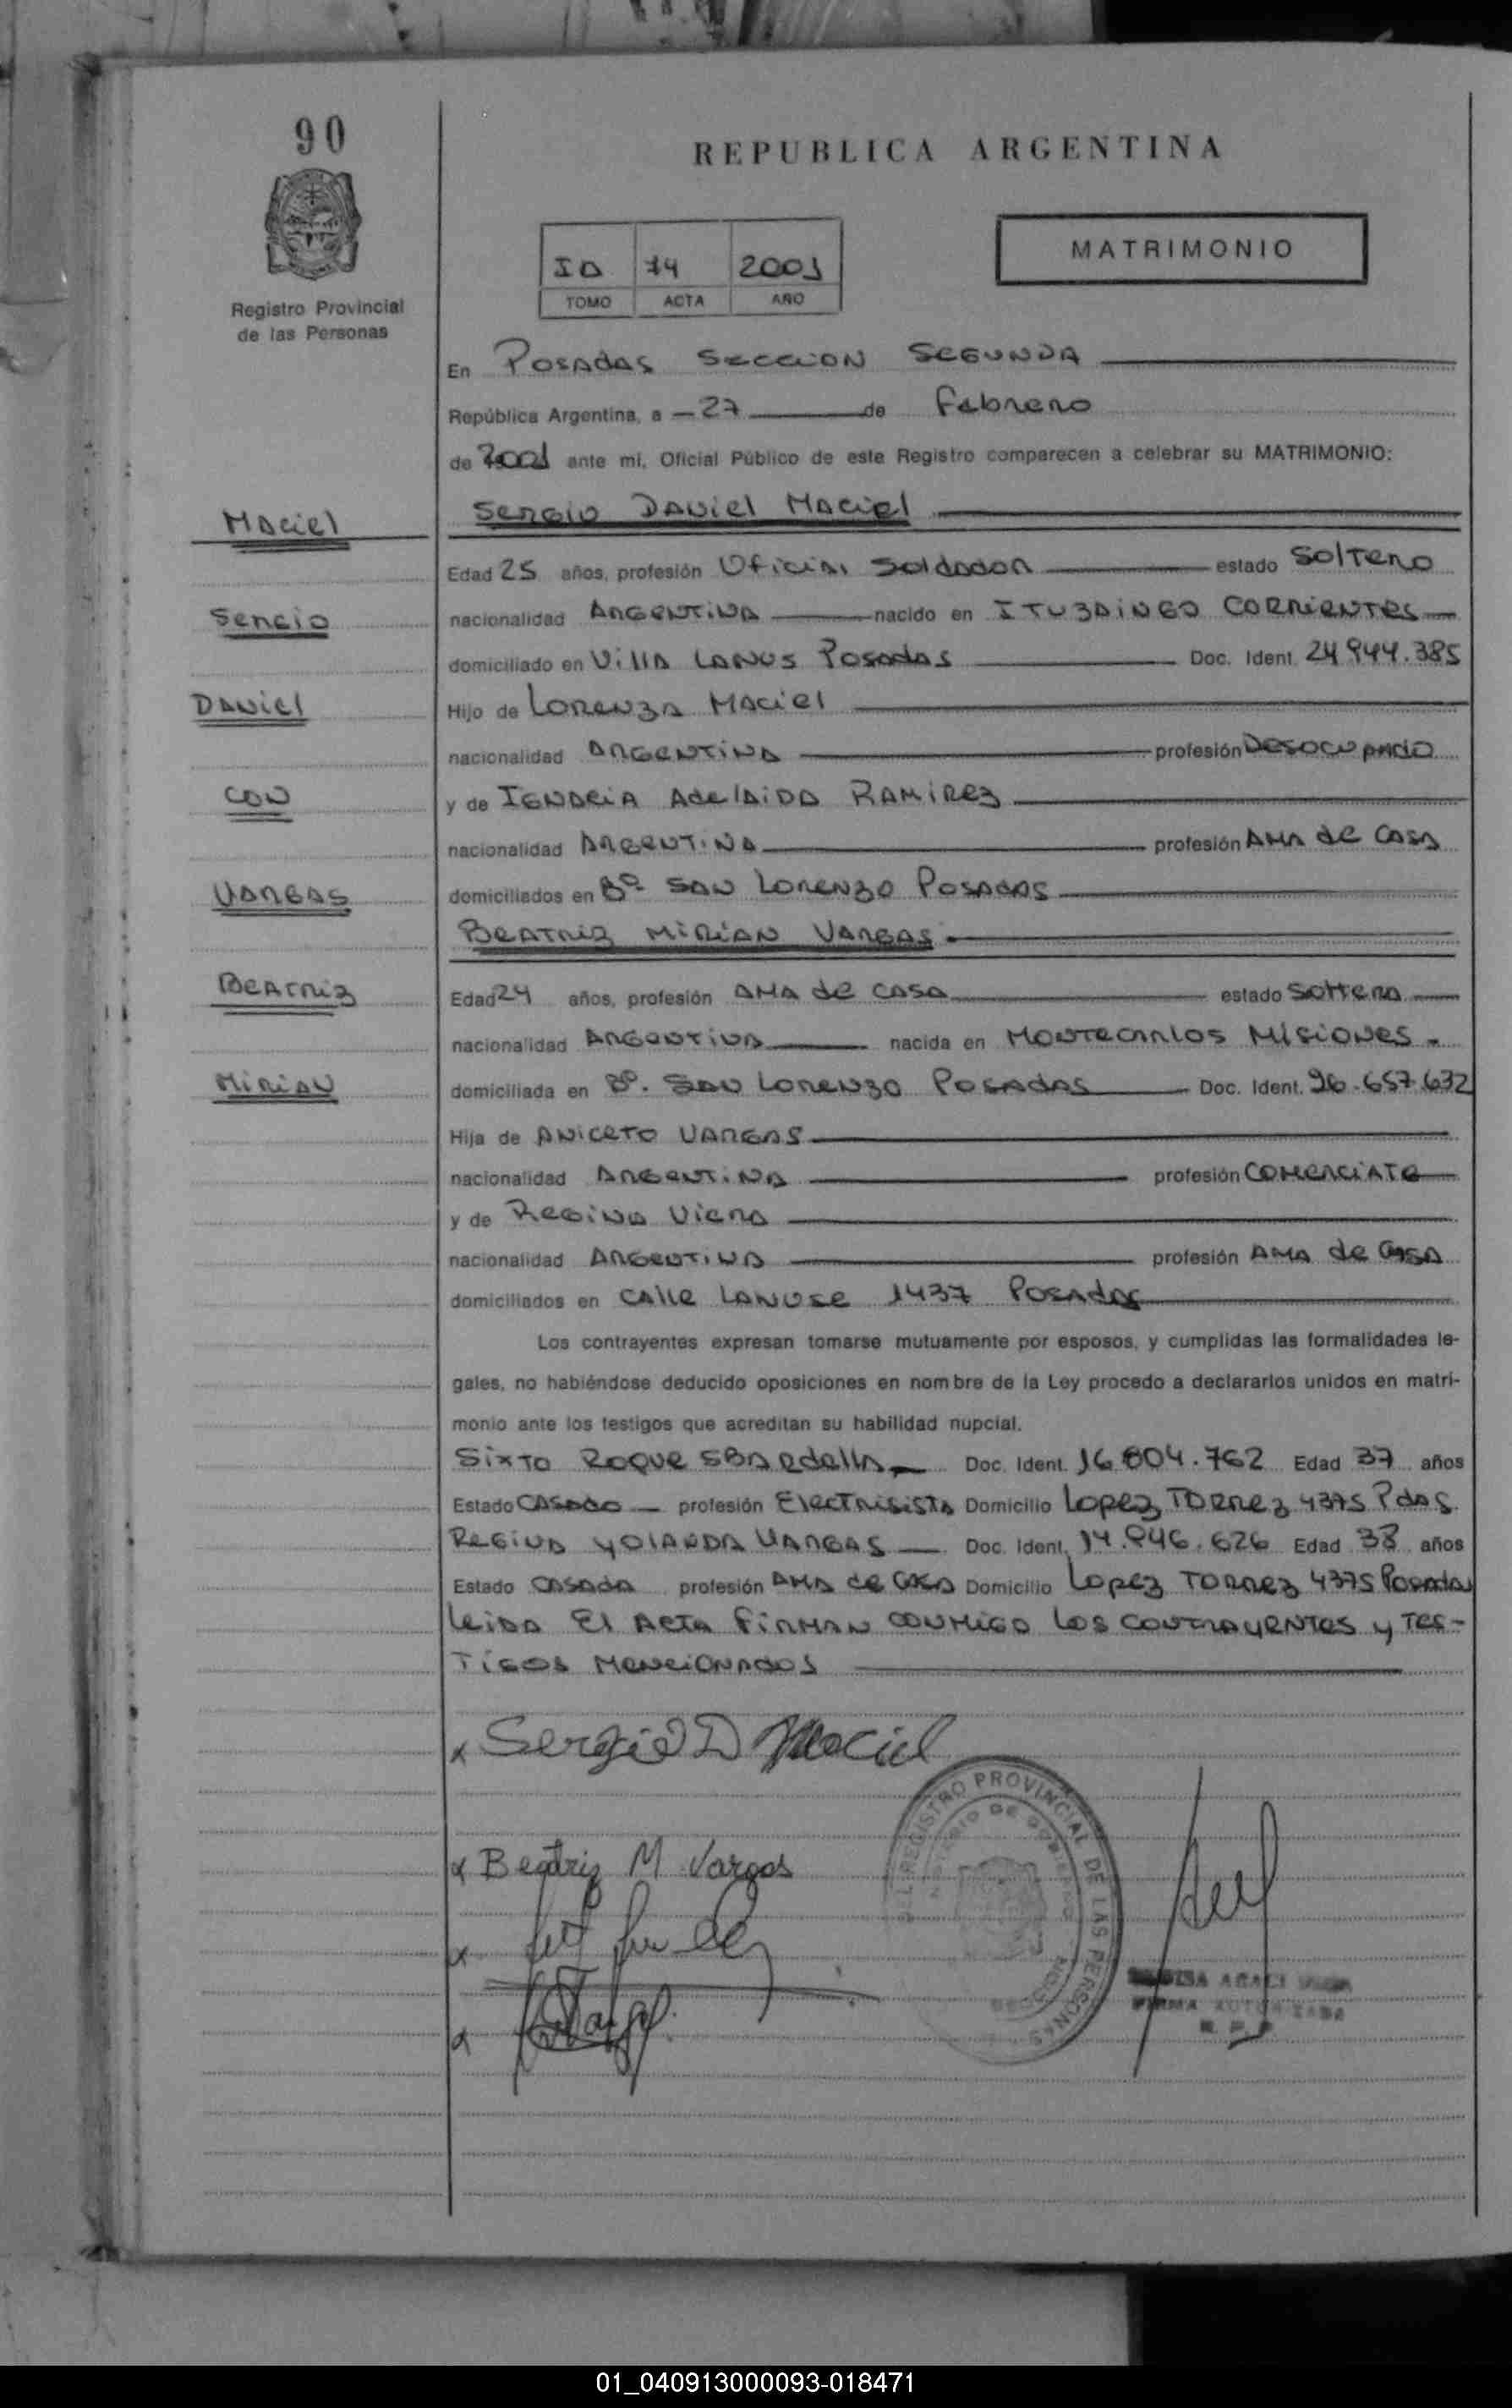 90
REPUBLICA ARGENTINA
MATRIMONIO
ID 74 2001
TOMO ACTA AÑO
Registro Provincial
de las Personas
En Posadas Seccion Segunda
República Argentina, a - 27 de Febrero
de 2001 ante mi, Oficial Público de este Registro comparecen a celebrar su MATRIMONIO:
Maciel
Sergio Daniel Maciel
Edad 25 años, profesión Oficial Soldador estado Soltero
Sergio
nacionalidad Argentina nacido en Ituzaingo Corrientes
domiciliado en Villa Lanus Posadas Doc. Ident. 24.944.385
Daniel
Hijo de Lorenza Maciel
nacionalidad Argentina profesión Desocupado
con
y de Ignacia Adelaida Ramirez
nacionalidad Argentina profesión Ama de Casa
Vargas
domiciliados en Bº San Lorenzo Posadas
Beatriz Mirian Vargas
Beatriz
Edad 24 años, profesión Ama de Casa estado Soltera
nacionalidad Argentina nacida en Montecarlos Misiones
Mirian
domiciliada en Bº. San Lorenzo Posadas Doc. Ident. 26.657.632
Hija de Aniceto Vargas
nacionalidad Argentina profesión Comerciate
y de Regina Viera
nacionalidad Argentina profesión Ama de Casa
domiciliados en Calle Lanuse 1437 Posadas
Los contrayentes expresan tomarse mutuamente por esposos, y cumplidas las formalidades le-
gales, no habiéndose deducido oposiciones en nombre de la Ley procedo a declararlos unidos en matri-
monio ante los testigos que acreditan su habilidad nupcial.
Sixto Roque Sbardella Doc. Ident. 16.804.762 Edad 37 años
Estado Casado profesión Electrisista Domicilio Lopez Torrez 4375 Pdas.
Regina Yolanda Vargas Doc. Ident. 14.946.626 Edad 38 años
Estado Casada profesión Ama de Casa Domicilio Lopez Torrez 4375 Posadas
Leida El Acta Firman conmigo los contrayentes y tes-
tigos mencionados
x Sergio D Maciel
x Beatriz M Vargas
x
x
REGISTRO PROVINCIAL DE LAS PERSONAS
MINISTERIO DE GOBIERNO
FIRMA AUTORIZADA
R. P. P.
01_040913000093-018471